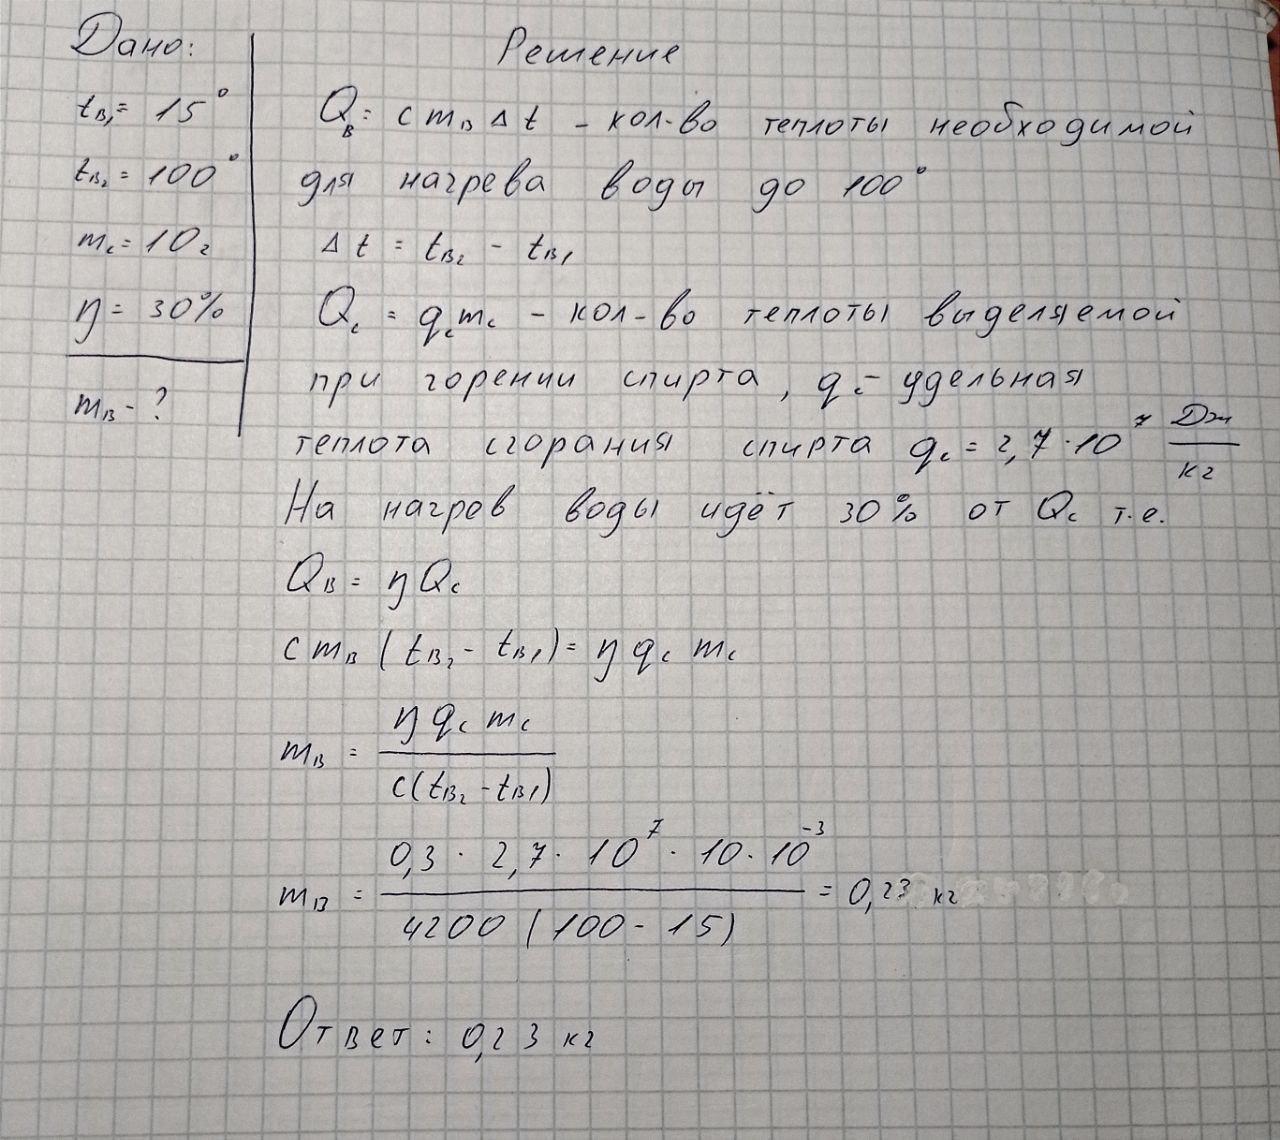 Дано:
t_В₁ = 15°
t_В₂ = 100°
m_с = 10г
η = 30%
m_В - ?
Решение
Q_В = c m_В Δt - кол-во теплоты необходимой
для нагрева воды до 100°
Δt = t_В₂ - t_В₁
Q_с = q_с m_с - кол-во теплоты выделяемой
при горении спирта, q_с - удельная
теплота сгорания спирта q_с = 2,7·10⁷ Дж/кг
На нагрев воды идёт 30% от Q_с т.е.
Q_В = η Q_с
c m_В (t_В₂ - t_В₁) = η q_с m_с
m_В = η q_с m_с / c(t_В₂ - t_В₁)
m_В = 0,3 · 2,7 · 10⁷ · 10 · 10⁻³ / 4200 (100 - 15) = 0,23 кг
Ответ: 0,23 кг